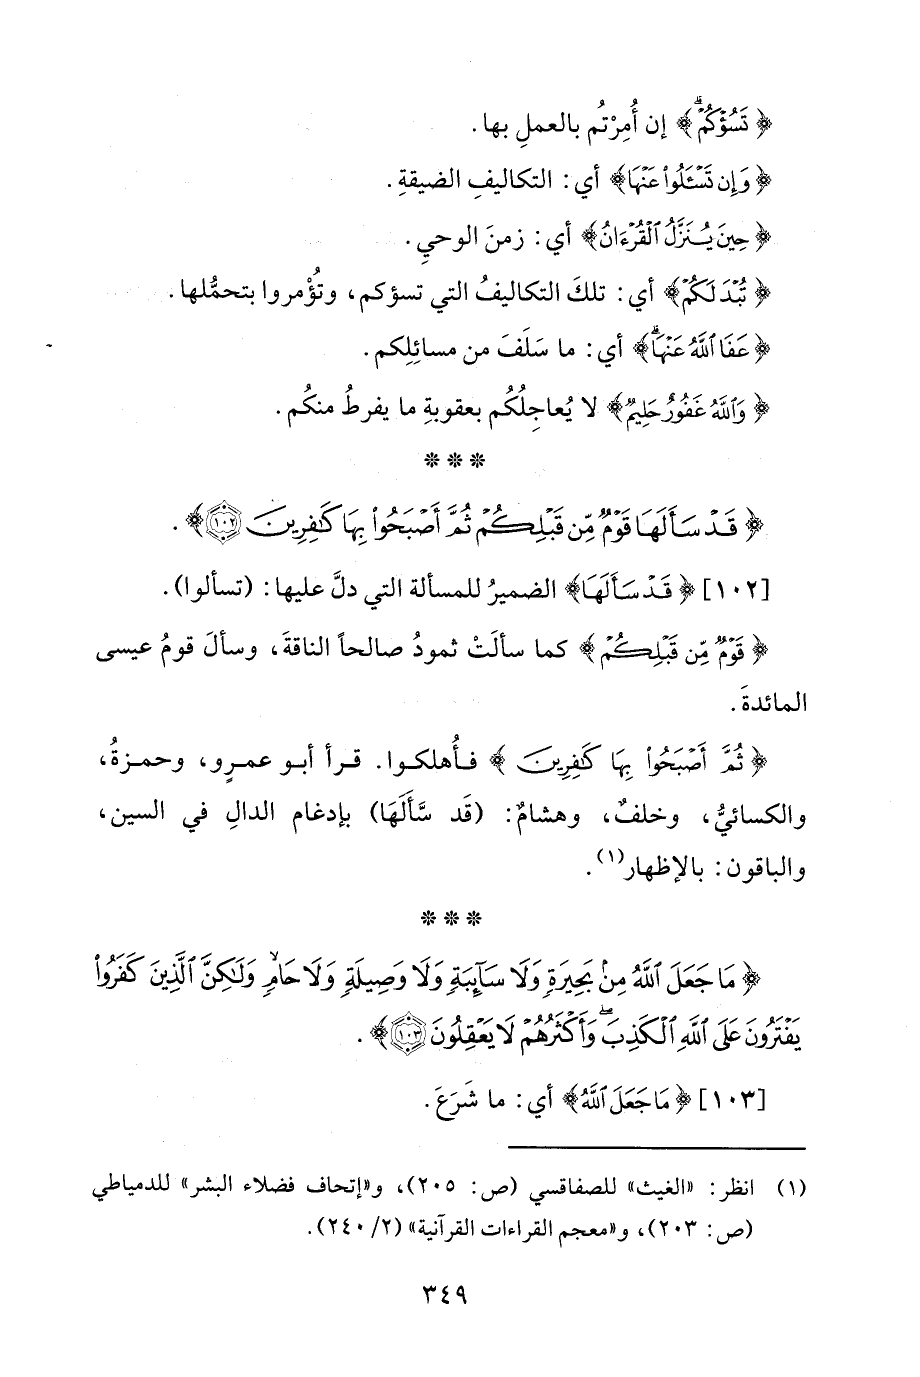 ﴿ تَسُؤْكُمْ ﴾ إن أُمِرْتُم بالعملِ بها.
﴿ وَإِن تَسْـَٔلُوا۟ عَنْهَا ﴾ أي: التكاليفِ الضيقةِ.
﴿ حِينَ يُنَزَّلُ ٱلْقُرْءَانُ ﴾ أي: زمنَ الوحيِ.
﴿ تُبْدَ لَكُمْ ﴾ أي: تلكَ التكاليفُ التي تسؤكم، وتُؤمروا بتحمُّلها.
﴿ عَفَا ٱللَّهُ عَنْهَا ۗ ﴾ أي: ما سَلَفَ من مسائِلِكم.
﴿ وَٱللَّهُ غَفُورٌ حَلِيمٌ ﴾ لا يُعاجِلُكُم بعقوبةِ ما يفرطُ منكُم.
* * *
﴿ قَدْ سَأَلَهَا قَوْمٌ مِّن قَبْلِكُمْ ثُمَّ أَصْبَحُوا۟ بِهَا كَـٰفِرِينَ ١٠٢ ﴾.
[١٠٢] ﴿ قَدْ سَأَلَهَا ﴾ الضميرُ للمسألة التي دلَّ عليها: (تسألوا).
﴿ قَوْمٌ مِّن قَبْلِكُمْ ﴾ كما سألَتْ ثمودُ صالحاً الناقةَ، وسألَ قومُ عيسى
المائدةَ.
﴿ ثُمَّ أَصْبَحُوا۟ بِهَا كَـٰفِرِينَ ﴾ فأُهلكوا. قرأ أبو عمرٍو، وحمزةُ،
والكسائيُّ، وخلفٌ، وهشامٌ: (قَد سَّأَلَهَا) بإدغام الدالِ في السين،
والباقون: بالإظهار(١).
* * *
﴿ مَا جَعَلَ ٱللَّهُ مِنۢ بَحِيرَةٍ وَلَا سَآئِبَةٍ وَلَا وَصِيلَةٍ وَلَا حَامٍ ۙ وَلَـٰكِنَّ ٱلَّذِينَ كَفَرُوا۟
يَفْتَرُونَ عَلَى ٱللَّهِ ٱلْكَذِبَ ۖ وَأَكْثَرُهُمْ لَا يَعْقِلُونَ ١٠٣ ﴾.
[١٠٣] ﴿ مَا جَعَلَ ٱللَّهُ ﴾ أي: ما شَرَعَ.
(١) انظر: «الغيث» للصفاقسي (ص: ٢٠٥)، و«إتحاف فضلاء البشر» للدمياطي
(ص: ٢٠٣)، و«معجم القراءات القرآنية» (٢/ ٢٤٠).
٣٤٩